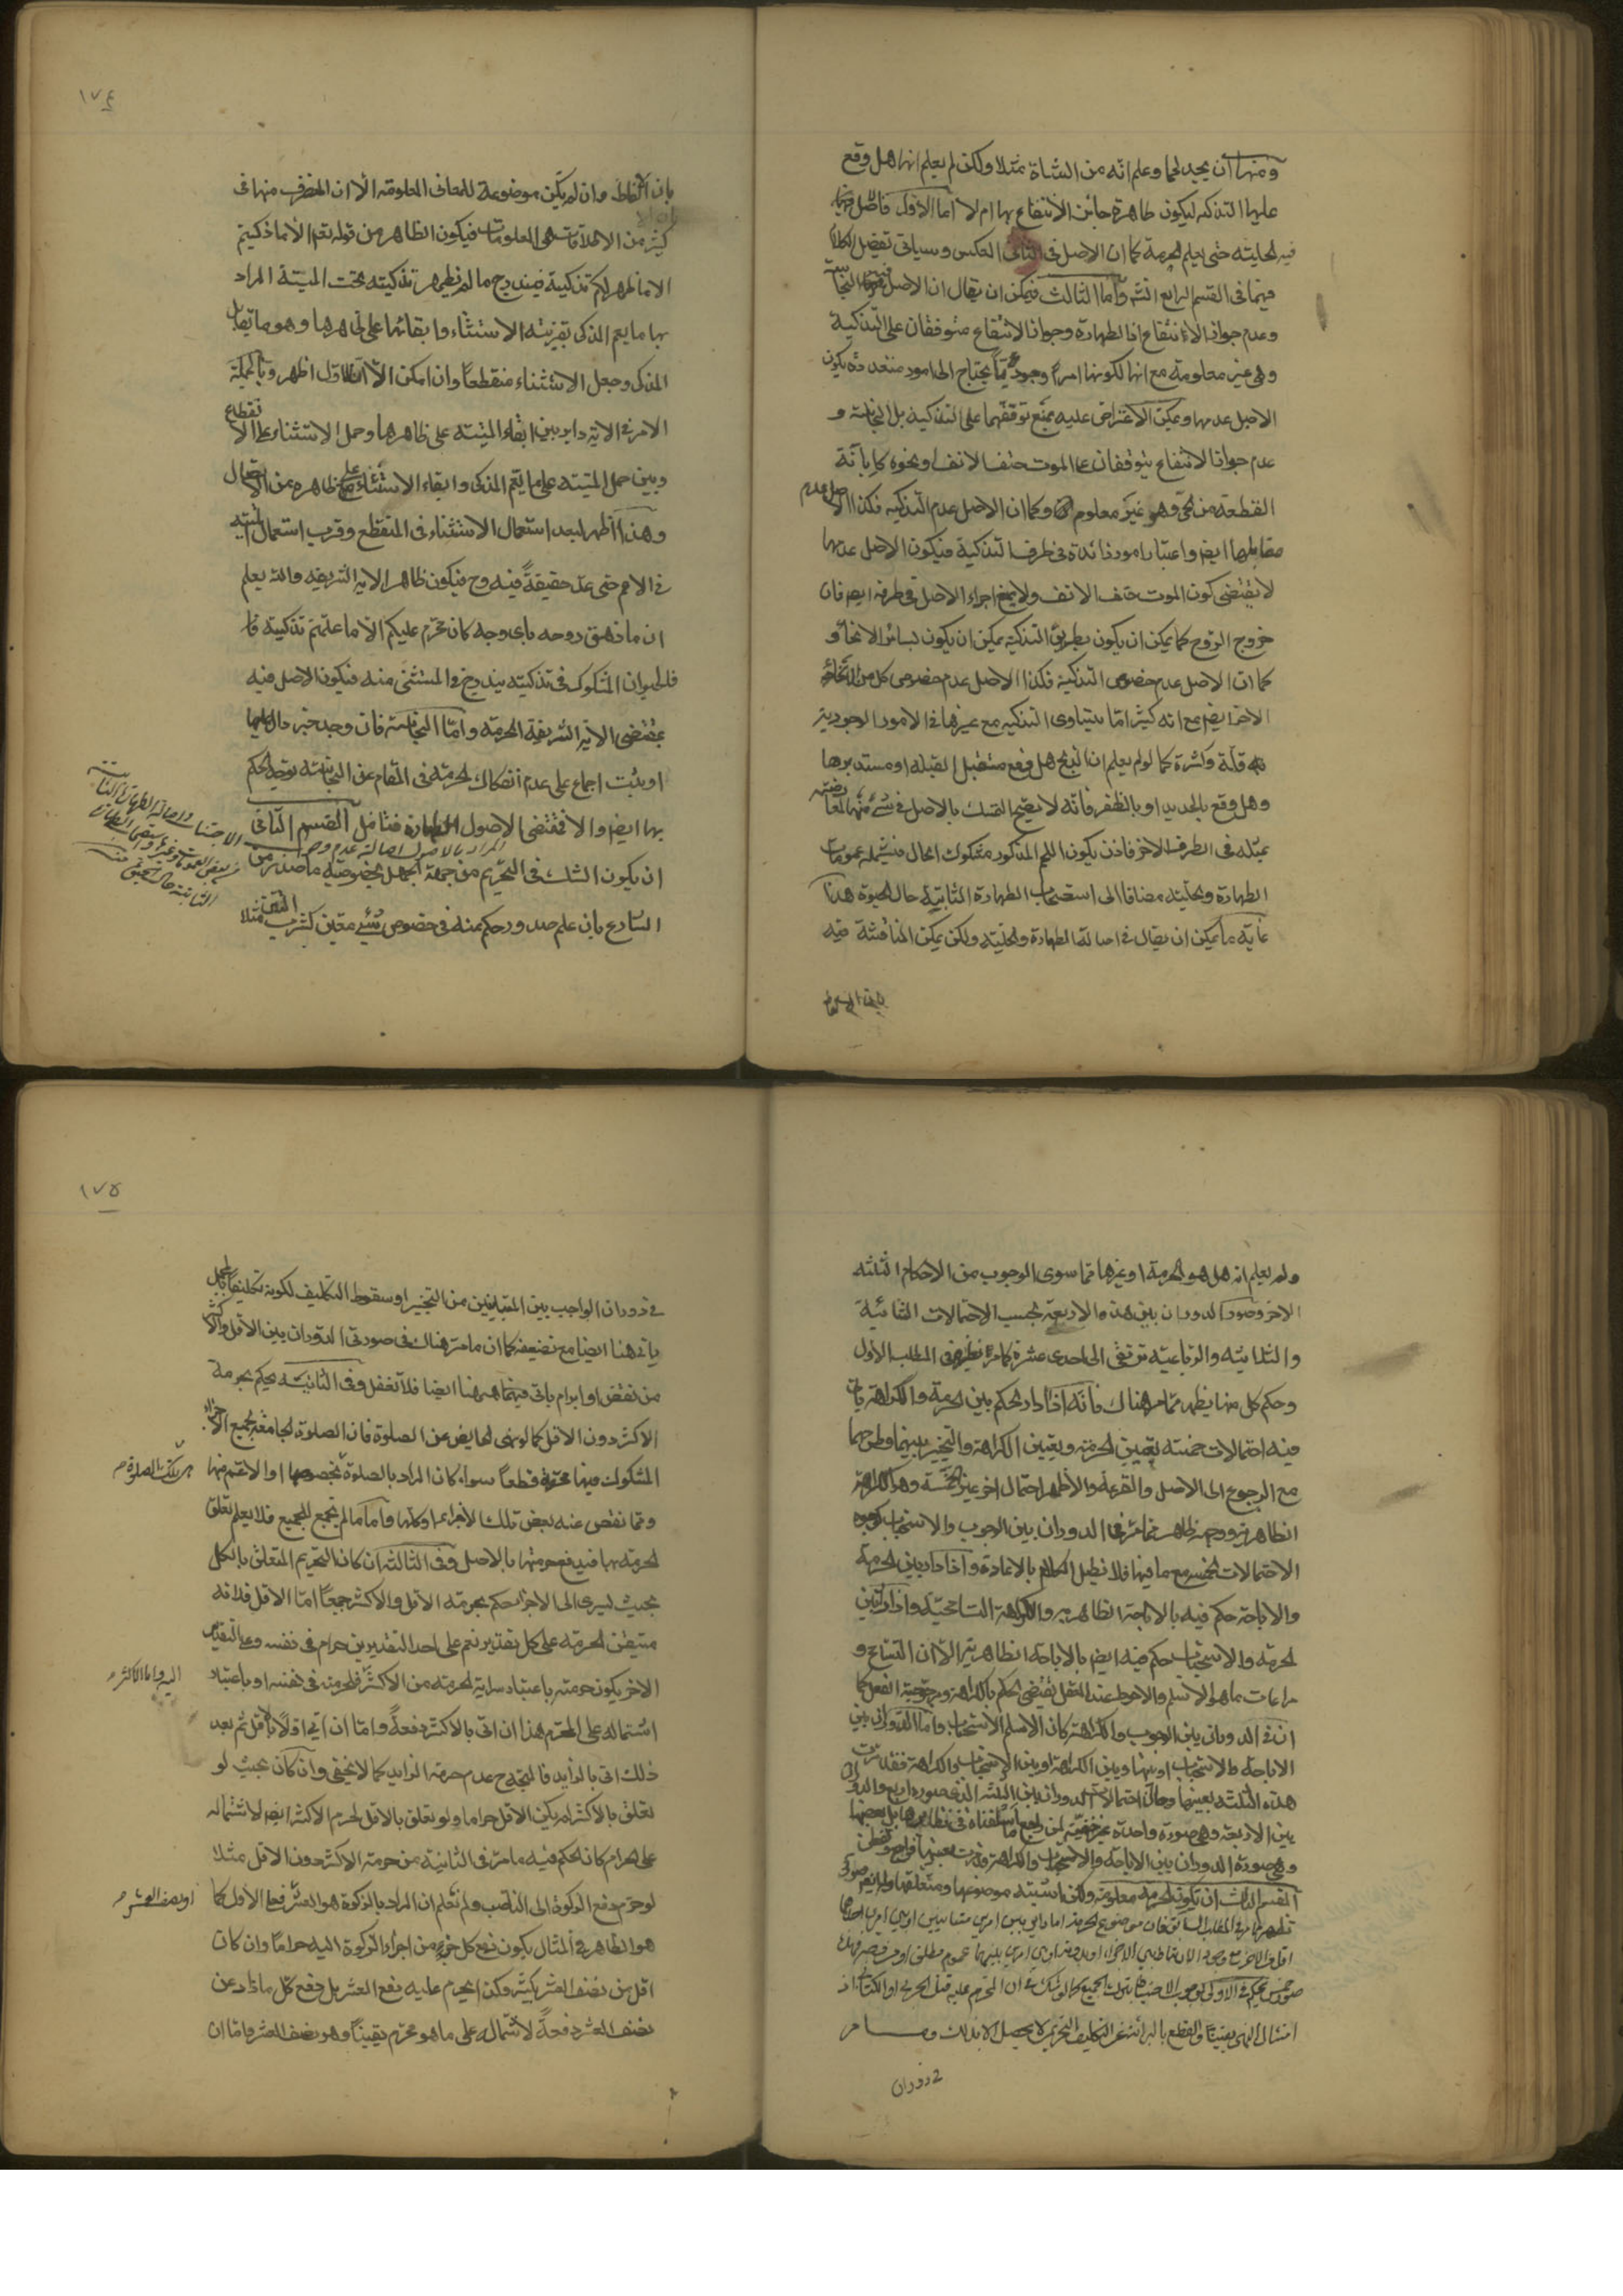 ومنها ان يجد لحما وعلم انه من الشاة مثلا ولكن لم يعلم انها هل وقع
عليها التذكية ليكون طاهرة جائز الانتفاع بها ام لا اما الاول فاصل
فيه الحلية حتى يعلم الحرمة كما ان الاصل فى الثانى العكس وسياتى تفصيل الكلام
فيما فى القسم الرابع انشه واما الثالث فيمكن ان يقال ان الاصل فيهما النجاسة
وعدم جواز الانتفاع اذ الطهارة وجواز الانتفاع متوقفان على التذكية
وهى غير معلومة مع انها لكونها امرا وجوديا يحتاج الى امور متعددة يكون
الاصل عدمها ويمكن الاعتراض عليه بمنع توقفهما على التذكية بل النجاسة و
عدم جواز الانتفاع يتوقفان على الموت حتف الانف او نحوه كابانة
القطعة من الحى وهو غير معلوم وكما ان الاصل عدم التذكية فكذا الاصل عدم
مقابلها ايضا واعتبار امور زائدة فى طرف التذكية فيكون الاصل عدمها
لا يقتضى كون الموت حتف الانف ولا يمنع اجراء الاصل فى طرفه ايضا فان
خروج الروح كما يمكن ان يكون بطريق التذكية يمكن ان يكون بسائر الانحاء و
كما ان الاصل عدم خصوص التذكية فكذا الاصل عدم خصوص كل من الانحاء
الاخر ايضا مع انه كثيرا ما يتساوى التذكية مع غيرها فى الامور الوجودية
قلة وكثرة كما لو لم يعلم ان الذبح هل وقع مستقبل القبلة او مستدبرها
وهل وقع بالحديد او بالظفر فانه لا يصح التمسك بالاصل فى شئ منهما لمعارضته
بمثله فى الطرف الاخر فاذن يكون اللحم المذكور مشكوك الحال فيشمله عمومات
الطهارة والحلية مضافا الى استصحاب الطهارة الثابتة حال الحيوة هذا
غاية ما يمكن ان يقال فى اصالة الطهارة والحلية ولكن يمكن المناقشة فيه
١٧٤
بان الالفاظ وان لم يكن موضوعة للمعانى المعلومة الا ان المنصرف منها فى
كثير من الاطلاقات هى المعلومات فيكون الظاهر من قوله تعم الا ما ذكيتم
الا ما ظهر لكم تذكيته فيندرج ما لم يظهر تذكيته تحت الميتة المراد
بها ما يعم المذكى بقرينة الاستثناء وابقائها على ظاهرها وهو ما يقابل
المذكى وجعل الاستثناء منقطعا وان امكن الا ان الاول اظهر وبالجملة
الامر فى الاية داير بين ابقاء الميتة على ظاهرها وحمل الاستثناء على الانقطاع
وبين حمل الميتة على ما يعم المذكى وابقاء الاستثناء على ظاهره من الاتصال
وهذا اظهر لبعد استعمال الاستثناء فى المنقطع وقرب استعمال الميتة
فى الاعم حتى عد حقيقة فيه وح فيكون ظاهر الاية الشريفة والله يعلم
ان ما زهق روحه باى وجه كان محرم عليكم الا ما علمتم تذكيته
فالحيوان المشكوك فى تذكيته يندرج فى المستثنى منه فيكون الاصل فيه
بمقتضى الاية الشريفة الحرمة واما النجاسة فان وجد خبر دال عليها
او يثبت اجماع على عدم انفكاك الحرمة فى المقام عن النجاسة توجه الحكم
بها ايضا والا فمقتضى الاصول الطهارة فتامل القسم الثانى
المراد بالاصول اصالة عدم وجوب
الاجتناب واصالة الطهارة الثابتة
الثابتة حال
ان يكون الشك فى التحريم من جهة الجهل بخصوصية ما صدر من
الشارع بان علم صدور حكم منه فى خصوص شئ معين كشرب التتن مثلا
١٧٥
ولم يعلم انه هل هو الحرمة او غيرها مما سوى الوجوب من الاحكام الثلثة
الاخر وصور الدوران بين هذه الاربعة بحسب الاحتمالات الثنائية
والثلاثية والرباعية ترتقى الى احدى عشرة كما مر نظيره فى المطلب الاول
وحكم كل منها يظهر مما مر هناك فانه اذا دار الحكم بين الحرمة والكراهة ياتى
فيه احتمالات خمسة تعيين الحرمة وتعيين الكراهة والتخيير بينهما وطرحهما
مع الرجوع الى الاصل والقرعة والاظهر احتمال اخر غير الخمسة وهو الكراهة
الظاهرية ووجهه ظاهر مما مر فى الدوران بين الوجوب والاستحباب كوجوه
الاحتمالات الخمس مع ما فيها فلا نطيل الكلام بالاعادة واذا دار بين الحرمة
والاباحة حكم فيه بالاباحة الظاهرية والكراهة التسامحية واذا دار بين
الحرمة والاستحباب حكم فيه ايضا بالاباحة الظاهرية الا ان التسامح و
مراعات ما هو الاسلم والاحوط عند العقل يقتضى الحكم بالكراهة ومرجوحية الفعل كما
ان فى الدوران بين الوجوب والكراهة كان الاسلم الاستحباب واما الدوران بين
الاباحة والاستحباب او بينها وبين الكراهة او بين الاستحباب والكراهة فقد مرت
هذه الثلثة بعينها وحال احتمالات الدوران بين الثلثة الذى صوره اربع والدوران
بين الاربعة وهى صورة واحدة غير خفية لمن راجع ما اسلفناه فى نظايرها بل بعضها
وهى صورة الدوران بين الاباحة والاستحباب والكراهة قد مرت بعينها فراجع وتفطن
القسم الثالث ان يكون الحرمة معلومة ولكن اشتبه موضوعها ومتعلقها
امتثال النهى يقينا والقطع بالبرائة عن التكليف التحريمى لا يحصل الا بذلك وما مر
فى دوران
فى دوران الواجب بين المتباينين من التخيير او سقوط التكليف لكونه تكليفا بالمجمل
ياتى هنا ايضا مع تضعيفه كما ان ما مر هناك فى صورتى الدوران بين الاقل والاكثر
من نقض او ابرام ياتى فيهما هيهنا ايضا فلا تغفل وفى الثانية يحكم بحرمة
الاكثر دون الاقل كما لو نهى الحايض عن الصلوة فان الصلوة الجامعة لجميع الاجزاء
المشكوك فيها محرمة قطعا سواء كان المراد بالصلوة بخصوصها او الاعم منها
ومما نقص عنه بعض تلك الاجزاء او كلها واما ما لم يجمع الجميع فلا يعلم تعلق
الحرمة بها فيدفع حرمتها بالاصل وفى الثالثة ان كان التحريم المتعلق بالكل
بحيث يسرى الى الاجزاء حكم بحرمة الاقل والاكثر جميعا اما الاقل فلانه
متيقن الحرمة على كل تقدير نعم على احد التقديرين حرام فى نفسه وعلى التقدير
الاخر يكون حرمته باعتبار سراية الحرمة من الاكثر فلحرمته فى نفسه او باعتبار
اليه واما الاكثر
اشتماله على المحرم هذا ان اتى بالاكثر دفعة واما ان اتى اولا بالاقل ثم بعد
ذلك اتى بالزايد فالمتجه ح عدم حرمة الزايد كما لا يخفى وان كان بحيث لو
تعلق بالاكثر لم يكن الاقل حراما ولو تعلق بالاقل لحرم الاكثر ايضا لاشتماله
على الحرام كان الحكم فيه ما مر فى الثانية من حرمة الاكثر دون الاقل مثلا
لو حرم دفع الزكوة الى الناصب ولم نعلم ان المراد بالزكوة هو العشر فعلى الاول كما
او نصف العشر
هو الظاهر فى المثال يكون دفع كل جزء من اجزاء الزكوة اليه حراما وان كان
اقل من نصف العشر بكثير وكذا يحرم عليه دفع العشر بل دفع كل ما زاد عن
نصف العشر دفعة لاشتماله على ما هو محرم يقينا وهو نصف العشر واما ان